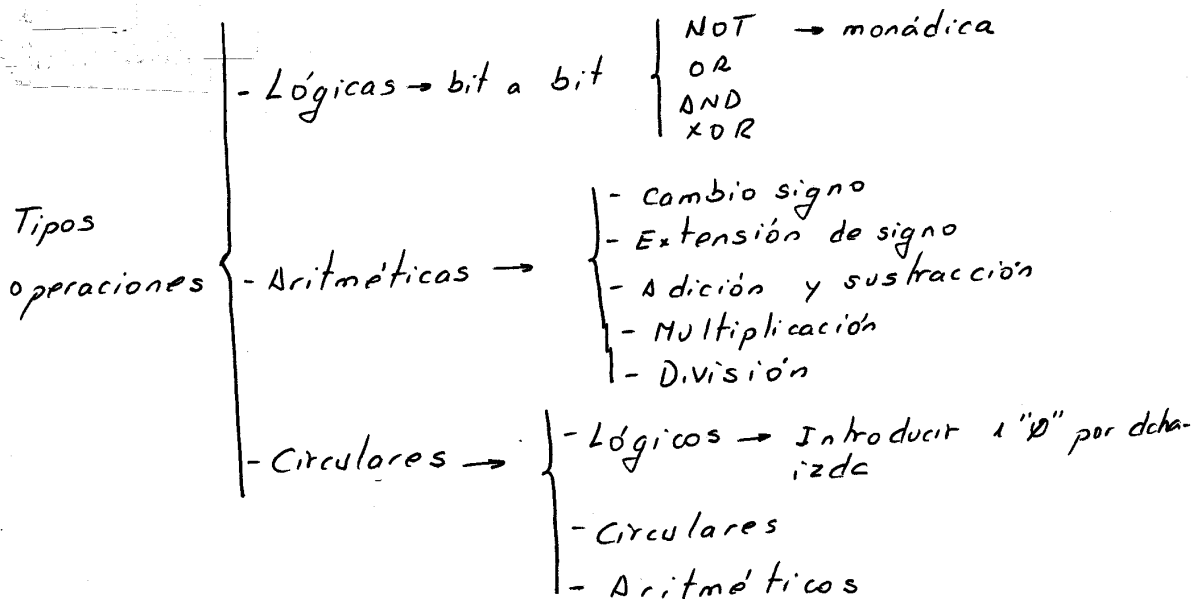 Tipos
operaciones
- Lógicas → bit a bit
NOT → monádica
OR
AND
XOR
- Aritméticas →
- Cambio signo
- Extensión de signo
- Adición y sustracción
- Multiplicación
- División
- Circulares →
- Lógicos → Introducir 1 "0" por dcha-
izda
- Circulares
- Aritméticos